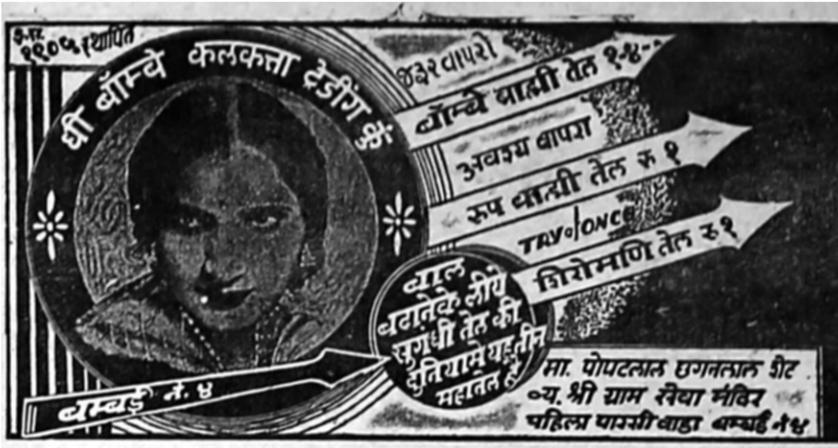 इ.स.
१९०५ स्थापित
धी बॉम्बे कलकत्ता ट्रेडींग कुं
જરૂર વાપરો
बॉम्बे ब्राह्मी तेल १-४-
अवश्य वापरा
रुप ब्राह्मी तेल रु १
TRY ONCE
शिरोमणि तेल रु १
बाल
बढानेके लीये
सुगंधी तेल की
दुनियामे यह तीन
महातेल है
बम्बई नं. ४
मा. पोपटलाल छगनलाल शेट
व्य. श्री ग्राम सेवा मंदिर
पहिला पारसी वाडा बम्बई नं ४